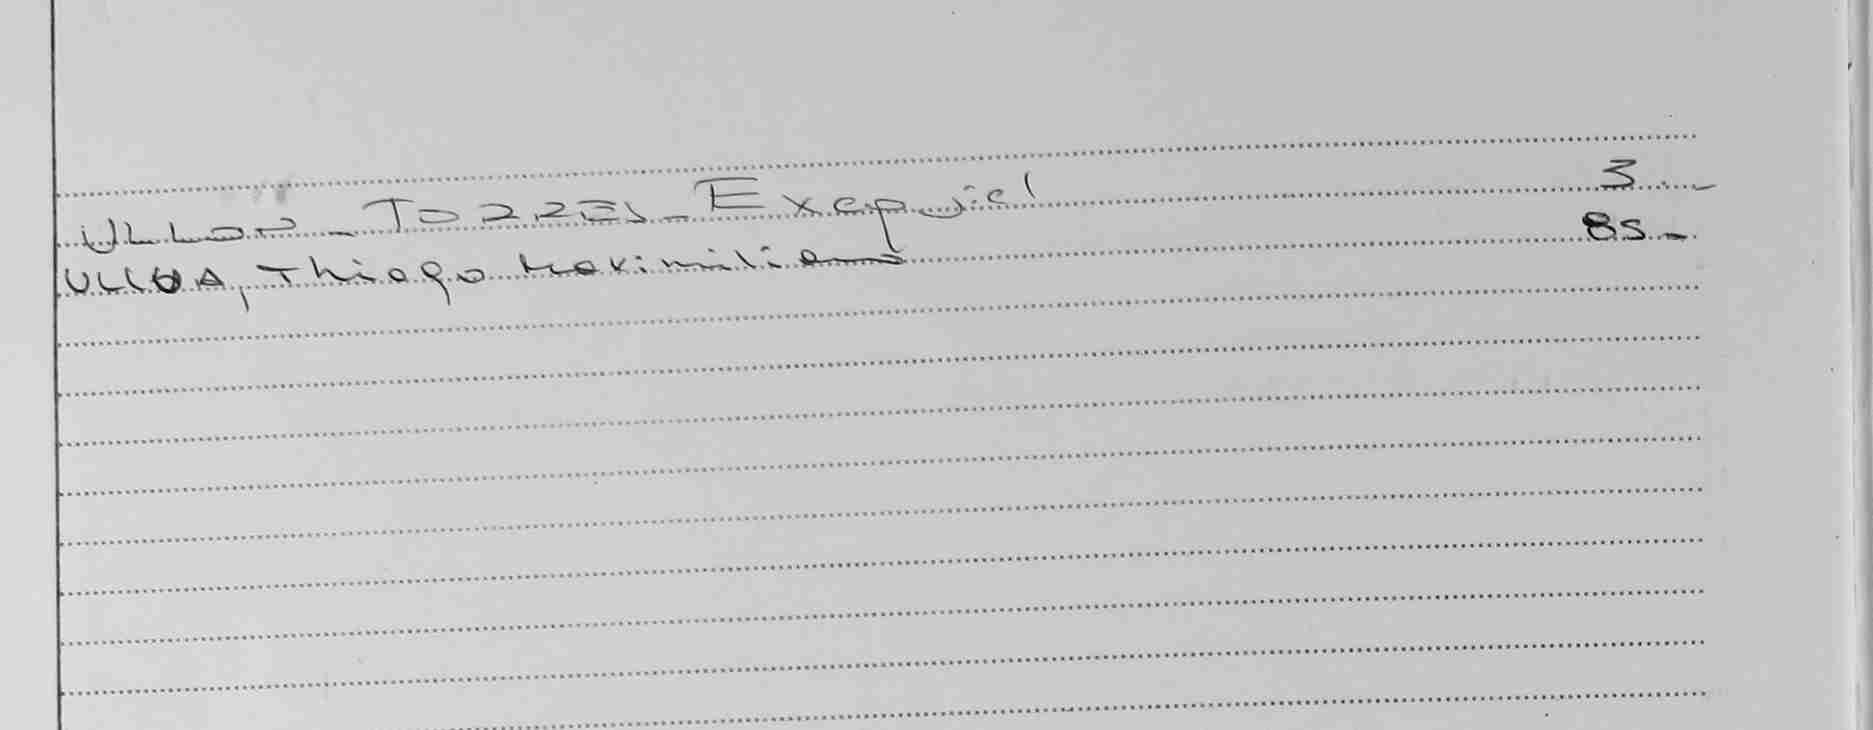 ULLOA - TORRES - Exequiel 3.-
ULLOA, Thiago Maximiliano 85.-